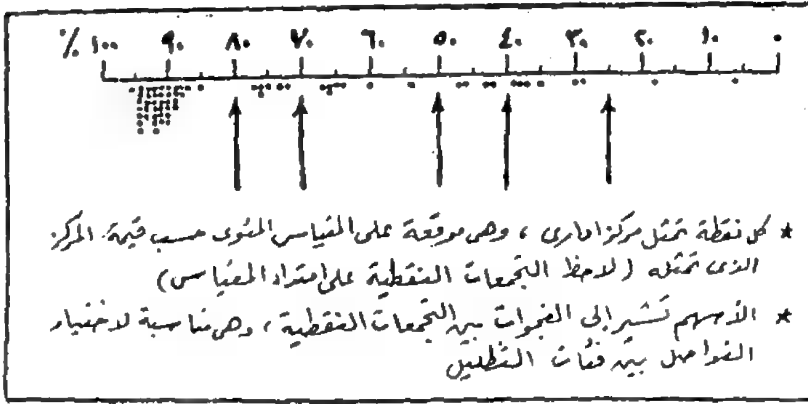 % ١٠٠ ٩٠ ٨٠ ٧٠ ٦٠ ٥٠ ٤٠ ٣٠ ٢٠ ١٠ ٠
* كل نقطة تمثل مركز ادارى ، وهى موقعة على المقياس المئوى حسب قيمة المركز
الذى تمثله (لاحظ التجمعات النقطية على امتداد المقياس)
* الأسهم تشير إلى الفجوات بين التجمعات النقطية ، وهى مناسبة لاختيار
الفواصل بين فئات التظليل